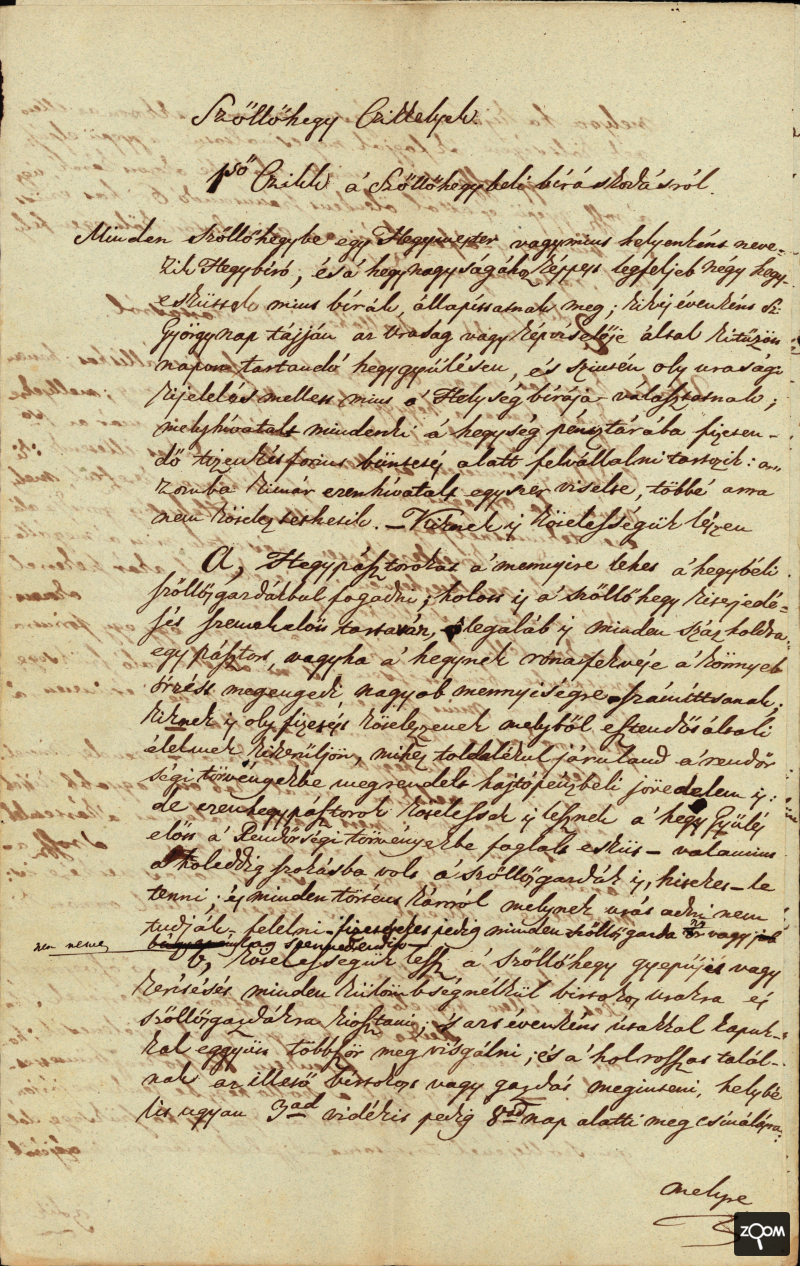 Szőllőhegy Czikkelyek
1ső Czikk á Szőllőhegybeli bíráskodásról.
Minden szőllőhegybe egy Hegymester vagy mint helyenként neve-
zik Hegybíró, és á hegy nagyságához képpest legfeljeb négy hegy-
esküsstek mint bírák, állapíttatnak meg; kik évenként Sz:
György nap tájján az Uraság vagy képviselője által kitűzött
napon tartandó hegygyülésen, és szintén oly uraság:
kijelelés mellett mint á Helység bírája választatnak;
mely hivatalt mindenki á hegység pénsztárába fizeten-
dő tizenkét forint büntetés alatt felvállalni tartozik: a-
zomba ki már ezen hivatalt egyszer viselte, többé arra
nem köteleztethetik. – Kiknek is kötelességük lészen
A, Hegypásztorokat á mennyire lehet á hegybéli
szőllősgazdákbul fogadni; holott is á szőllőhegy kiterjedé-
sét szemek előtt tartván, legaláb is minden száz holdra
egy pásztort, vagy ha á hegynek róna fekvése á könnyeb
őrzést megengedi nagyob mennyiségre számíttsanak;
kiknek is oly fizetést kötelezzenek melyből esztendőt általi
élelmek kikerüljön, mihez toldalékul járuland a rendőr
ségi törvényekbe megrendelt hajtópénzbeli jövedelem is:
de ezen hegypásztorok kötelessek is lesznek á hegy Gyülés
előtt á Rendőrségi törvényekbe foglalt esküt – valamint
az koleddig szokásba volt á szőllősgazdák is, hiteket – le
tenni; és minden történt kárról melynek urát adni nem
tudják – felelni – fizetéseket pedig minden szőllősgazda
nem nemes
b, kötelességük lessz á szőllőhegy gyepűjét vagy
kerítését minden külömbség nélkül birtokos urakra és
szőllősgazdákra kiosztani, s azt évenként utakkal kapuk-
kal eggyütt többször megvisgálni; és á hol rosszat talál-
nak az illető birtokost vagy gazdát meginteni, helybé
lit ugyan 3ad vidékit pedig 8ad nap alatti meg csinálásra;
melyre
ZOOM